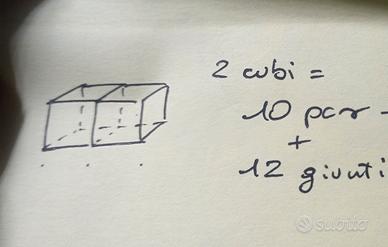 2 cubi =
10 par -
+
12 giunti
subito